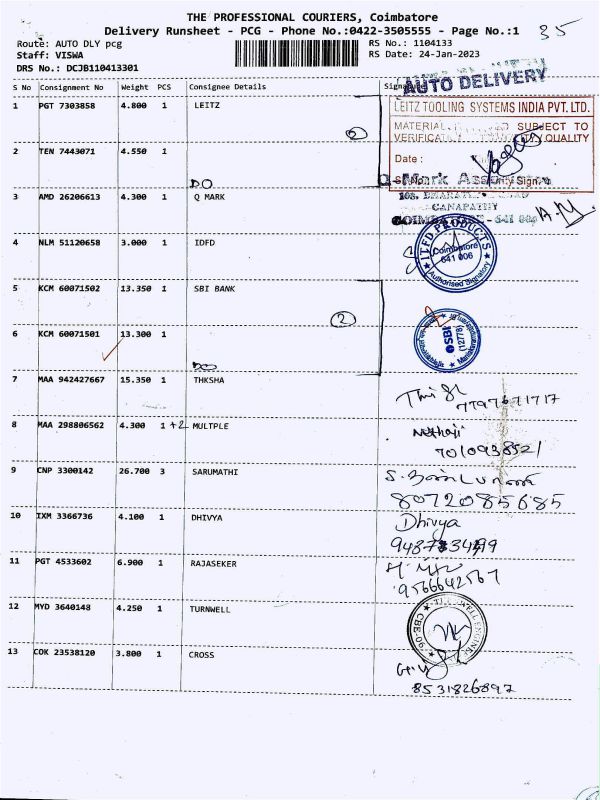 THE PROFESSIONAL COURIERS, Coimbatore
Delivery Runsheet - PCG - Phone No.:0422-3505555 - Page No.:1
35
Route: AUTO DLY pcg
RS No.: 1104133
Staff: VISWA
RS Date: 24-Jan-2023
DRS No.: DCJB110413301
AUTO DELIVERY
S No Consignment No Weight PCS Consignee Details
1 PGT 7303858 4.800 1 LEITZ
LEITZ TOOLING SYSTEMS INDIA PVT. LTD.
MATERIAL SUBJECT TO
QUALITY
Date :
2 TEN 7443071 4.550 1
DO
3 AMD 26206613 4.300 1 Q MARK
GANAPATHY
4 NLM 51120658 3.000 1 IDFD
Coimbatore
641 006
Authorised Signatory
5 KCM 60071502 13.350 1 SBI BANK
2
SBI
(12778)
6 KCM 60071501 13.300 1
DO
7 MAA 942427667 15.350 1 THKSHA
8 MAA 298806562 4.300 1 +2 MULTPLE
9 CNP 3300142 26.700 3 SARUMATHI
8072085685
10 IXM 3366736 4.100 1 DHIVYA
Dhivya
11 PGT 4533602 6.900 1 RAJASEKER
9566642567
12 MYD 3640148 4.250 1 TURNWELL
13 COK 23538120 3.800 1 CROSS
8531826897